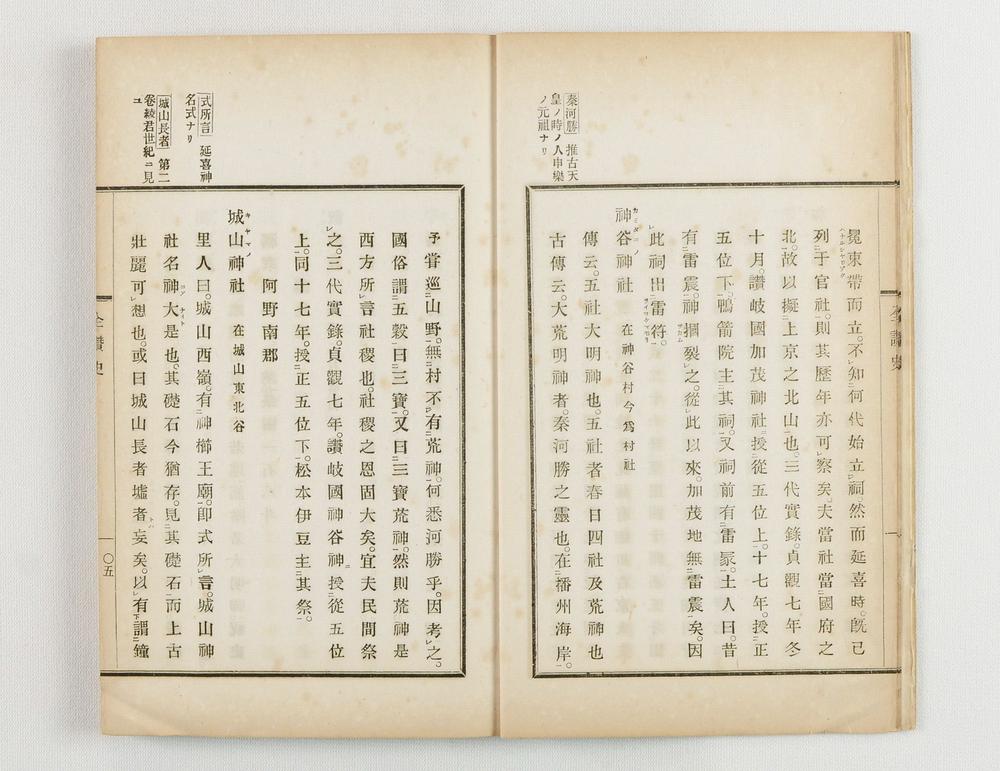 秦河勝 推古天
皇ノ時ノ人申樂
ノ元祖ナリ
冕束帶而立。不知何代始立祠。然而延喜時。既已
列于官社。則其歷年亦可察矣。夫當社當國府之
北。故以擬上京之北山也。三代實錄。貞觀七年冬
十月。讚岐國加茂神社授從五位上。十七年。授正
五位下。鴨箭院主其祠。又祠前有雷冢。土人曰。昔
有雷震。神摑裂之。從此以來。加茂地無雷震矣。因
此祠出雷符。
神谷神社 在神谷村今爲村社
傳云。五社大明神也。五社者春日四社及荒神也
古傳云。大荒明神者。秦河勝之靈也。在播州海岸。
全讚史
一
式所言 延喜神
名式ナリ
城山長者 第二
卷綾君世紀ニ見
ユ
予甞巡山野。無村不有荒神。何悉河勝乎。因考之。
國俗謂五穀曰三寶。又曰三寶荒神。然則荒神是
西方所言社稷也。社稷之恩固大矣。宜夫民間祭
之。三代實錄。貞觀七年。讚岐國神谷神授從五位
上。同十七年。授正五位下。松本伊豆主其祭。
阿野南郡
城山神社 在城山東北谷
里人曰。城山西嶺。有神櫛王廟。即式所言。城山神
社名神大是也。其礎石今猶存。見其礎石而上古
壯麗可想也。或曰城山長者墟者妄矣。以有謂鐘
全讚史
一〇五